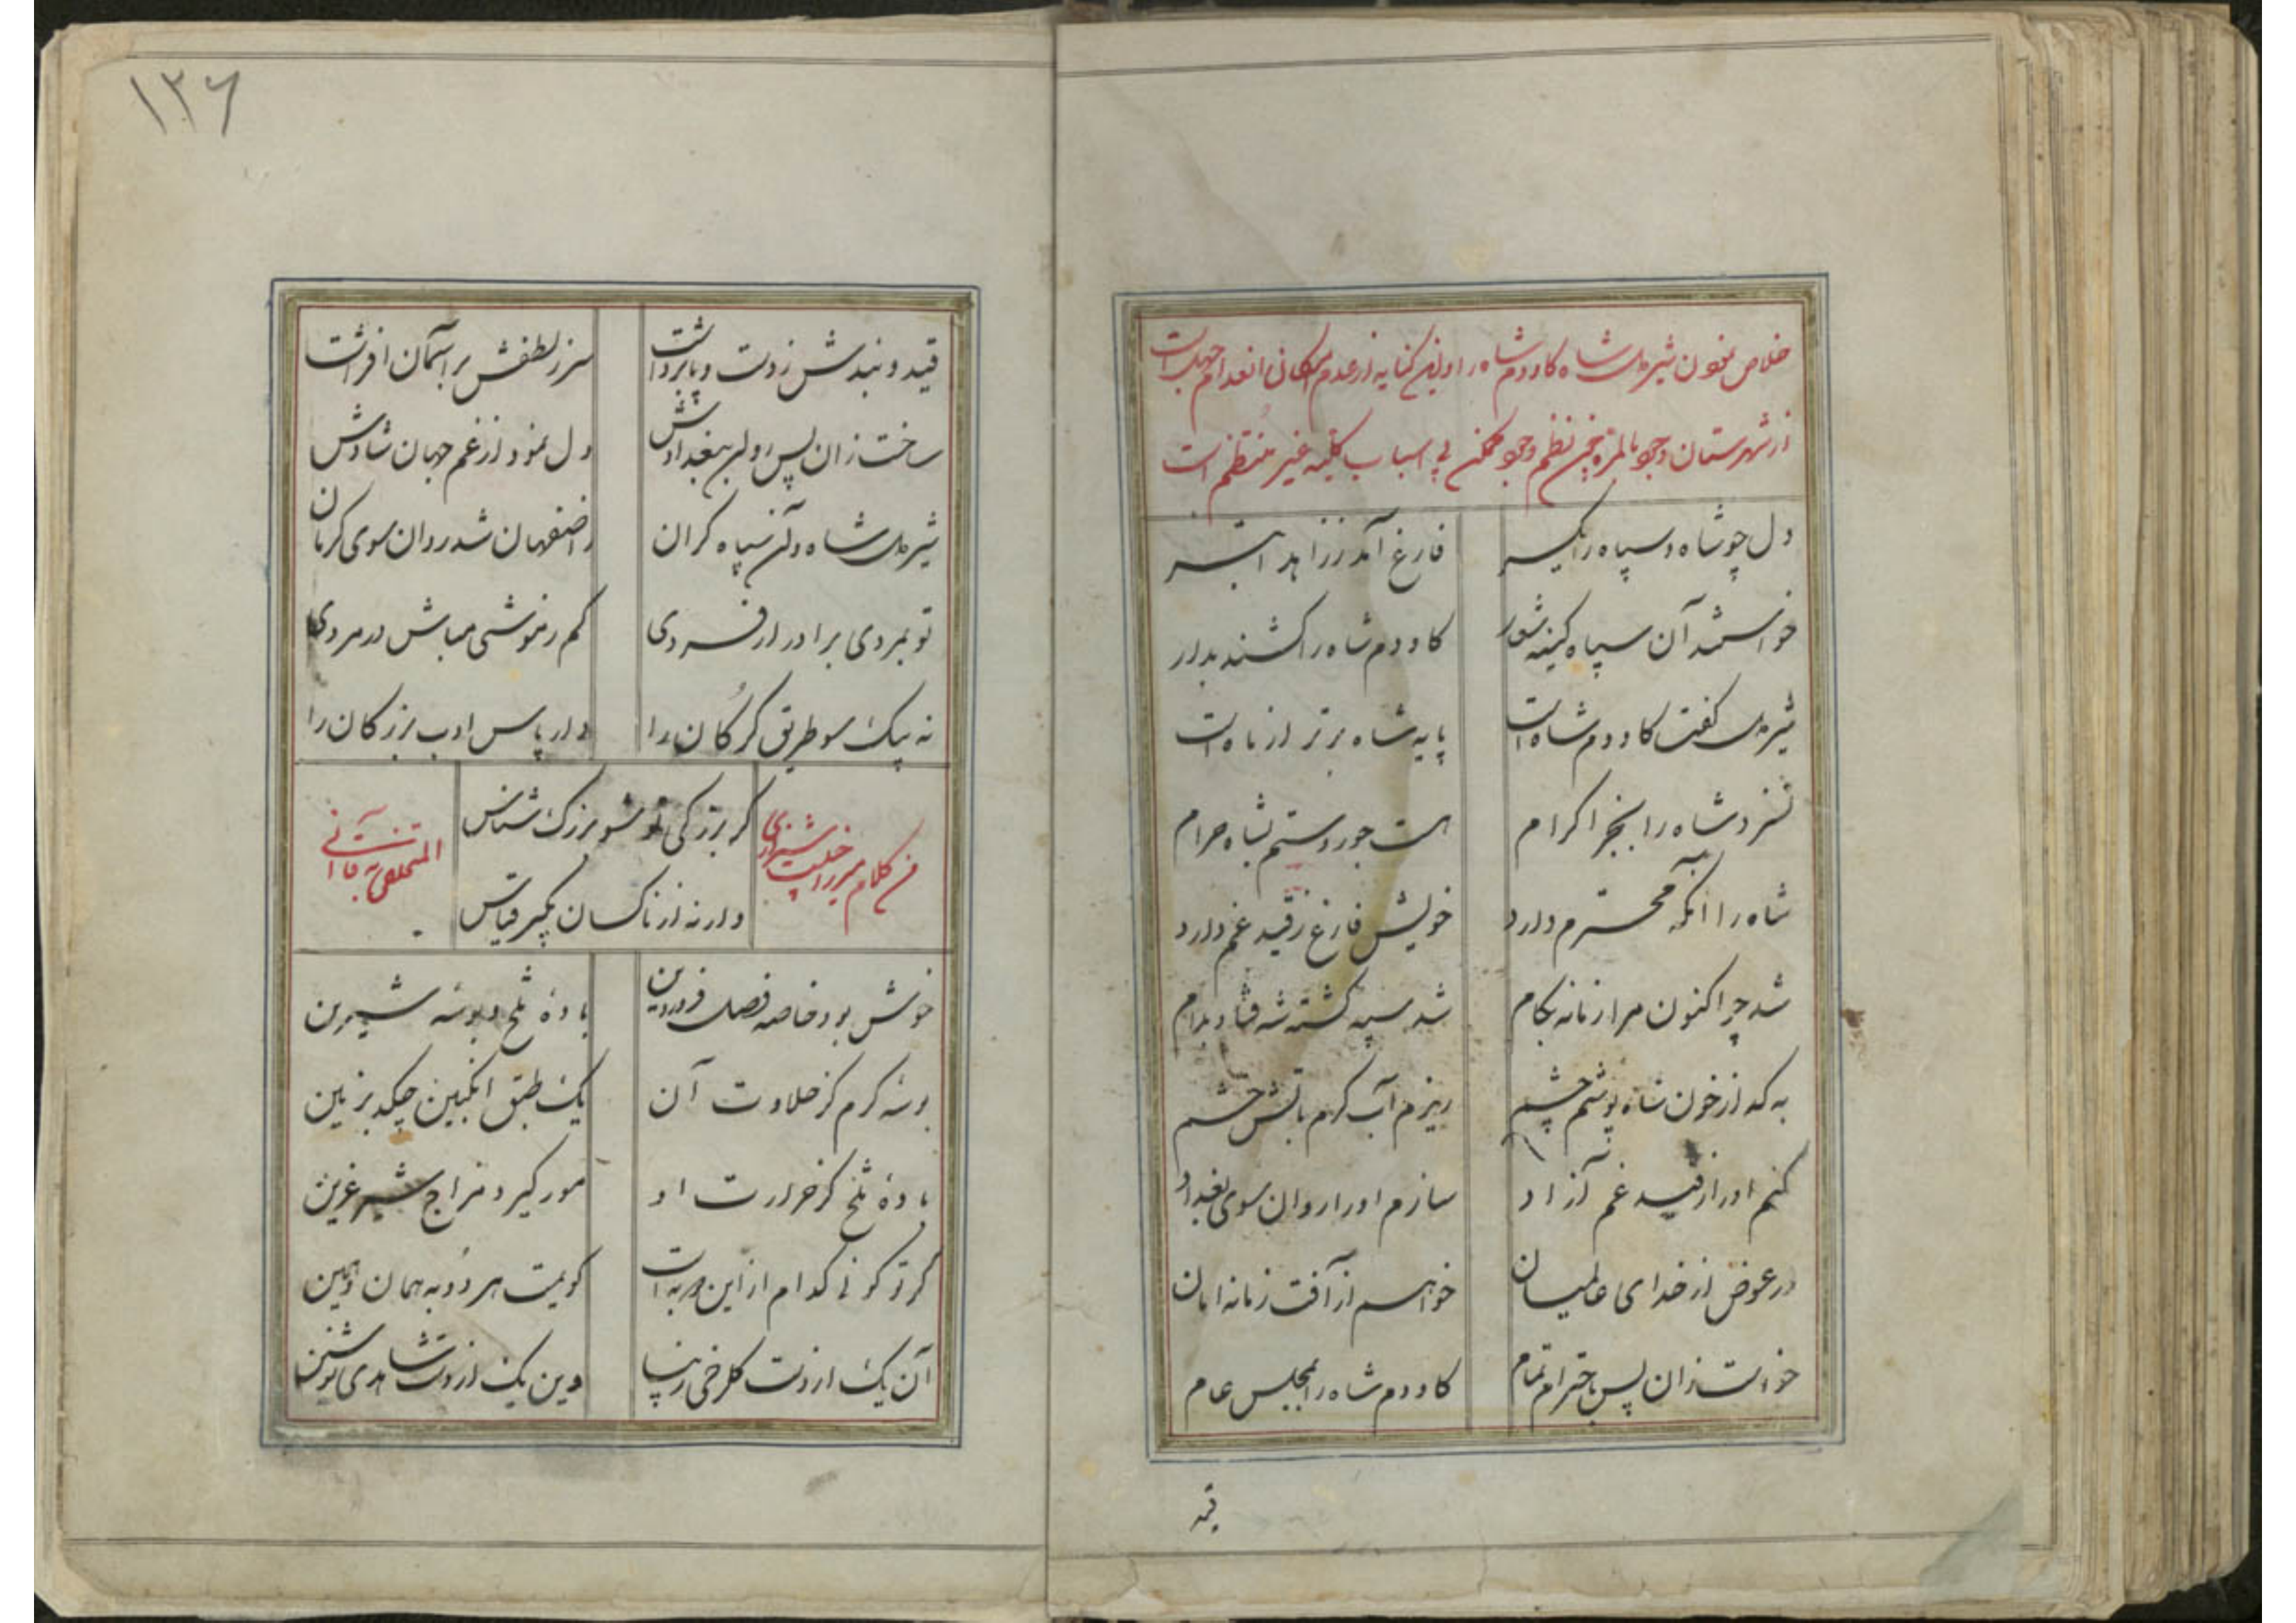 خلاص نمودن شیردل شاه کاودم شاه را و این کنایه از عدم امکان انعدام جهل است
از شهرستان وجود بالمره چون نظم وجود ممکن بی اسباب کلیه غیر منتظم است
دل چو شاه و سپاه را یکسر فارغ آمد ز زاهد ابتر
خواستند آن سپاه کینه شور کاودم شاه را کشند بدار
شیردل گفت کاودم شاه است پایه شاه برتر از ماه است
نسزد شاه را بجز اکرام هست جور و ستم بشاه حرام
شاه را آنکه محترم دارد خویش فارغ ز قید غم دارد
شد چو اکنون مرا زمانه بکام شد سپه کشته شه فتاد بدام
به که از خون شاه پوشم چشم ریزم آب کرم باتش خشم
کنم او را از قید غم آزاد سازم او را روان سوی بغداد
در عوض از خدای عالمیان خواهم از آفت زمانه امان
خواست زان پس باحترام تمام کاودم شاه را بمجلس عام
قید
۱۲۶
قید و بندش ز دست و پا برداشت سر ز لطفش بر آسمان افراشت
ساخت زان پس روان ببغدادش دل نمود از غم جهان شادش
شیردل شاه و آن سپاه کران ز اصفهان شد روان سوی کرمان
تو بمردی برادر ار فردی کم ز موشی مباش در مردی
نه بیک سو طریق گرگان را دار پاس ادب بزرگان را
من کلام میرزا حبیب شیرازی
گر بزرگی تو شو بزرگ شناس
المتخلص به قاآنی
دار نه از ناکسان بگیر قیاس
خوش بود خاصه فصل فروردین بادهٔ تلخ و بوسهٔ شیرین
بوسهٔ گرم کز حلاوت آن یک طبق انگبین چکد بزمین
بادهٔ تلخ کز حرارت او مور گیرد مزاج شیر عرین
گر تو گوئی کدام از این دو به است گویمت هر دو به همان و همین
آن یک از دست گلرخی زیبا وین یک از دست شاهدی نوشین